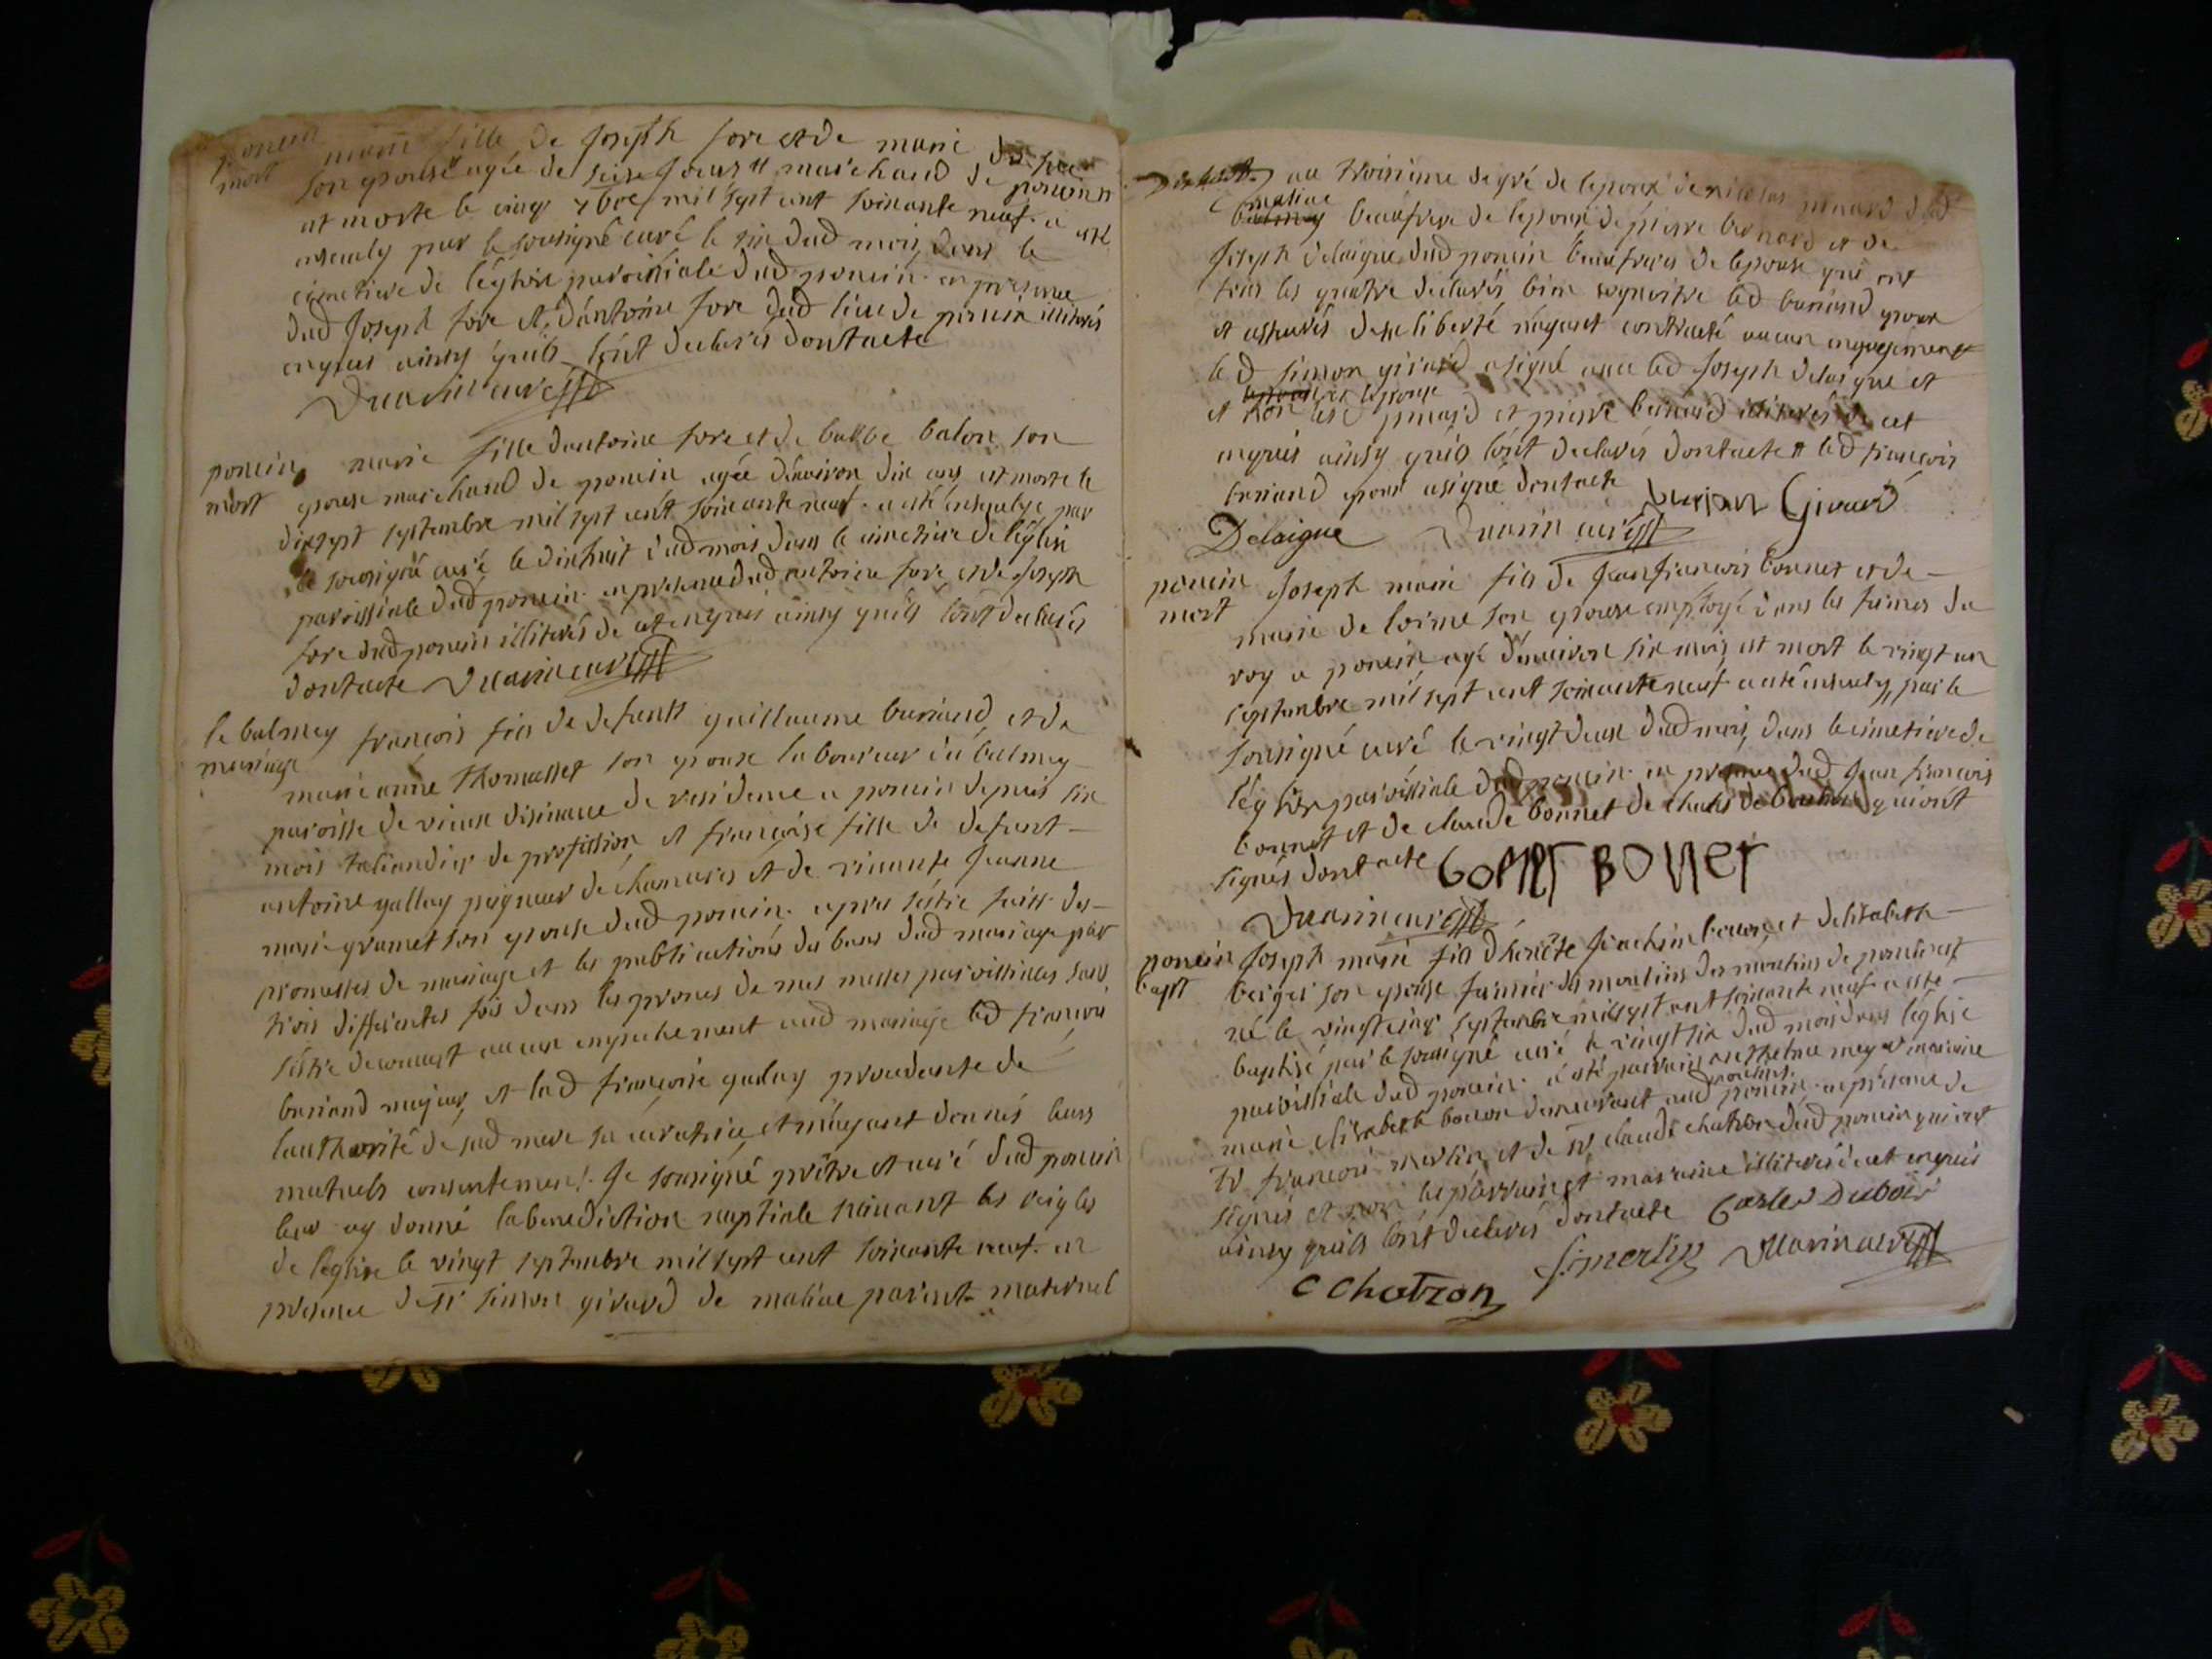 poncin
mort
marie fille de Joseph fore et de marie
son epouse agée de seise jours marchand de poncin
est morte le cinq 7bre mil sept cent soixante neuf a esté
ensevely par le sousigné curé le six dud mois dans le
cimetiere de léglise paroissiale dud poncin en presence
dud Joseph fore et dantoine fore dud lieu de poncin illiterés
enquis ainsy quils lont declarés dont acte
curé
poncin
mort
marie fille dantoine fore et de balon son
epouse marchand de poncin agée denviron dix ans est morte le
dixsept septembre mil sept cent soixante neuf a esté ensevelye par
le sousigné curé le dixhuit dud mois dans le cimetiere de léglise
paroissiale dud poncin en presence dud antoine fore et de Joseph
fore dud poncin illiterés de ce enquis ainsy quils lont declarés
dont acte curé
le balmey
mariage
françois fils de defunts guillaume buriand et de
marie anne Thomasset son epouse laboureur du balmey
paroisse de vieux disinave de residence a poncin depuis six
mois de profession et françoise fille de defunt
antoine gallay peigneur de chanvres et de vivante Jeanne
marie gramet son epouse dud poncin apres sestre faitt des
promesses de mariage et les publications des bans dud mariage par
trois differentes fois dans les prones de mes messes paroissiales sans
sestre decouvert aucun empechement aud mariage led françois
buriand majeur et lad françoise galay procedante de
lauthorité de sad mere sa curatrice et mayant donnés leurs
mutuels consentement. Je sousigné prêtre et curé dud poncin
leur ay donné la benediction nuptiale suivant les reigles
de leglise le vingt septembre mil sept cent soixante neuf en
presence de sr simon girard de maliac parent maternel
au troisieme degré de lepoux de nicolas
maliac
balmey beaufrere de lepoux de pierre bernard et de
Joseph delaigue dud poncin beaufreres de lepouse qui ont
tous les quatre declarés bien cognoitre led buriand epoux
et assurés de sa liberté nayant contracté aucun engagement
led simon girard a signé avec led Joseph delaigue et
lepouse
et non et pierre bernard illiterés de ce
enquis ainsy quils lont declarés dont acte led françois
buriand epoux a signé dont acte burian Girard
Delaigue curé
poncin
mort
Joseph marie fils de Jean françois bonnet et de
marie de lorme son epouse employé dans les fermes du
roy a poncin agé denviron six mois est mort le vingt un
septembre mil sept cent soixante neuf a été ensevely par le
sousigné curé le vingt deux dud mois dans le cimetiere de
léglise paroissiale dud poncin en presence dud Jean françois
bonnet et de claude bonnet de qui ont
signés dont acte BONET
curé
poncin
bapt
Joseph marie fils dhonête Joachim et delisabeth
berger son epouse fermier des moulins de poncin est
né le vingt cinq septembre mil sept cent soixante neuf a esté
baptisé par le sousigné curé le vingt six dud mois dans léglise
paroissiale dud poncin a été parrain anthelme et marraine
marie elisabeth demeurant aud poncin en presence de
sr françois merlin et de sr claude chatron dud poncin qui ont
signés et non les parrain et marraine illiterés de ce enquis
ainsy quils lont declarés dont acte Dubois
f. merlin curé
C Chatron